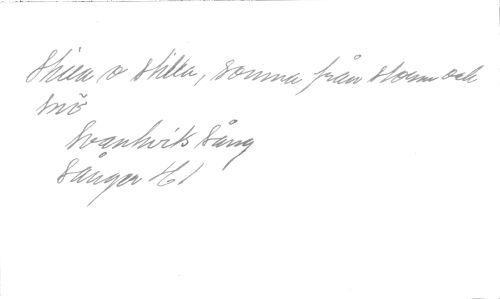 Skina o stilla, somna från storm och
snö
Svanhvits Sång
Sånger H 1